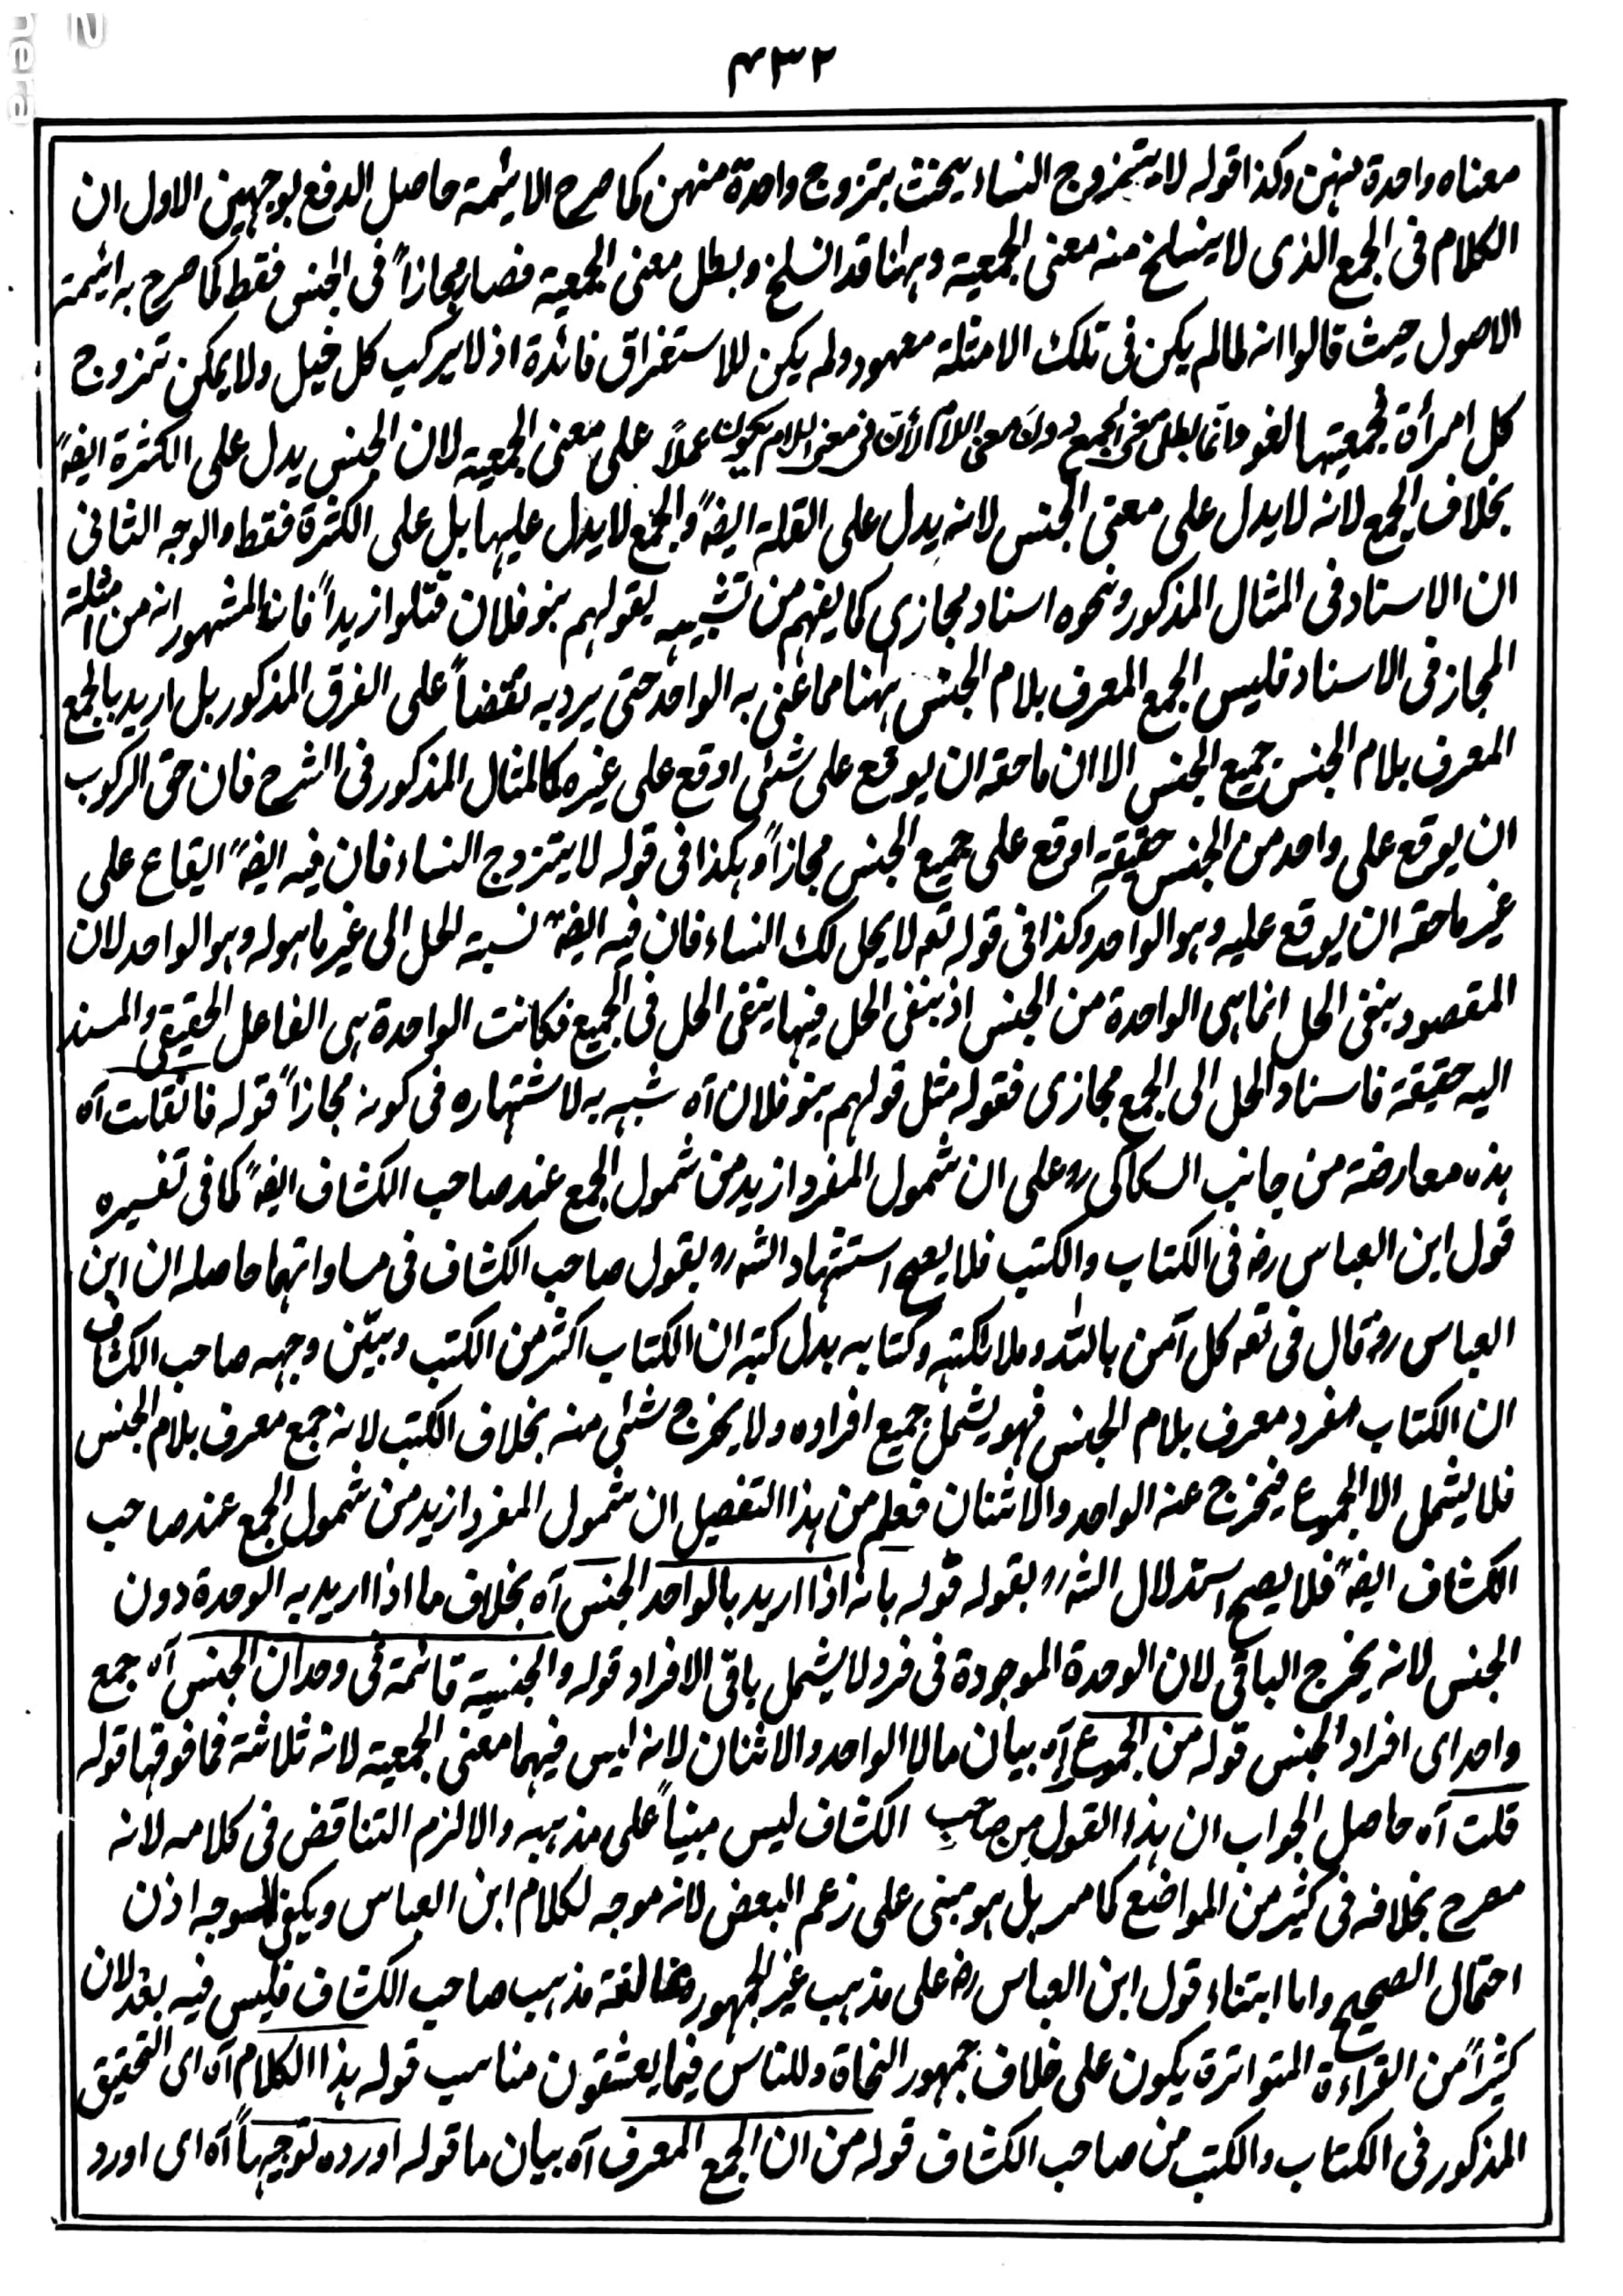 ۴۳۲
معناه واحدة منهن وكذا قوله لا يتزوج النساء يحنث بتزوج واحدة منهن كما صرح الايمة حاصل الدفع بوجهين الاول ان
الكلام فى الجمع الذى لا ينسلخ منه معنى الجمعية وههنا قد انسلخ وبطل معنى الجمعية فصار مجازاً فى الجنس فقط كما صرح به ايمة
الاصول حيث قالوا انه لما لم يكن فى تلك الامثلة معهود ولم يكن للاستغراق فائدة اذ لا يركب كل خيل ولا يمكن تزوج
كل امرأة لجمعيتها لغو وانما بطل معنى الجمع دون معنى اللام لأن فى معنى اللام يكون عملاً على معنى الجمعية لان الجنس يدل على الكثرة ايضاً
بخلاف الجمع لانه لا يدل على معنى الجنس لانه يدل على القلة ايضاً والجمع لا يدل عليها بل على الكثرة فقط والوجه الثانى
ان الاسناد فى المثال المذكور ونحوه اسناد مجازى كما يفهم من تشبيهه بقولهم بنو فلان قتلوا زيداً فان المشهور انه من امثلة
المجاز فى الاسناد فليس الجمع المعرف بلام الجنس ههنا مما عنى به الواحد حتى يرد به نقضاً على الفرق المذكور بل اريد بالجمع
المعرف بلام الجنس جميع الجنس الا ان ما حقه ان يوقع على شئى اوقع على غيره كالمثال المذكور فى الشرح فان حق الركوب
ان يوقع على واحد من الجنس حقيقة اوقع على جميع الجنس مجازاً وهكذا فى قوله لا يتزوج النساء فان فيه ايضاً ايقاع على
غير ما حقه ان يوقع عليه وهو الواحد وكذا فى قوله تعه لا يحل لك النساء فان فيه ايضاً نسبة للحل الى غير ما هوله وهو الواحد لان
المقصود بنفى الحل انما هى الواحدة من الجنس اذ بنفى الحل فيها ينتفى الحل فى الجميع فكانت الواحدة هى الفاعل الحقيقى والمسند
اليه حقيقة فاسناد الحل الى الجمع مجازى فقوله مثل قولهم بنو فلان آه شبه به لاشتهاره فى كونه مجازاً قوله فان قلت آه
هذه معارضة من جانب السكاكى ره على ان شمول المفرد ازيد من شمول الجمع عند صاحب الكشاف ايضاً كما فى تفسيره
قول ابن العباس رض فى الكتاب والكتب فلا يصح استشهاد الشه ره بقول صاحب الكشاف فى مساواتهما حاصله ان ابن
العباس رض قال فى تعه كل آمن بالله وملائكته وكتابه بدل كتبه ان الكتاب اكثر من الكتب وبيّن وجهه صاحب الكشاف
ان الكتاب مفرد معرف بلام الجنس فهو يشمل جميع افراده ولا يخرج شئى منه بخلاف الكتب لانه جمع معرف بلام الجنس
فلا يشمل الا الجموع فيخرج عنه الواحد والاثنان فعلم من هذا التفصيل ان شمول المفرد ازيد من شمول الجمع عند صاحب
الكشاف ايضاً فلا يصح استدلال الشه ره بقوله قوله بانه اذا اريد بالواحد الجنس آه بخلاف ما اذا اريد به الوحدة دون
الجنس لانه يخرج الباقى لان الوحدة الموجودة فى فرد لا يشمل باقى الافراد قوله والجنسية قائمة فى وحدان الجنس آه جمع
واحد اى افراد الجنس قوله من الجموع آه بيان ما لا الواحد والاثنان لانه ليس فيهما معنى الجمعية لانه ثلاثة فما فوقها قوله
قلت آه حاصل الجواب ان هذا القول من صاحب الكشاف ليس مبنياً على مذهبه والا لزم التناقض فى كلامه لانه
مصرح بخلافه فى كثير من المواضع كما مر بل هو مبنى على زعم البعض لانه موجه لكلام ابن العباس ويكفى للموجه اذن
احتمال الصحيح واما ابتناء قول ابن العباس رض على مذهب غير الجمهور ومخالفة مذهب صاحب الكشاف فليس فيه بعد لان
كثيراً من القراءة المتواترة يكون على خلاف جمهور النحاة وللناس فيما يعشقون مناسب قوله هذا الكلام آه اى التحقيق
المذكور فى الكتاب والكتب من صاحب الكشاف قوله من ان الجمع المعرف آه بيان ما قوله اورده توجيهاً آه اى اورد